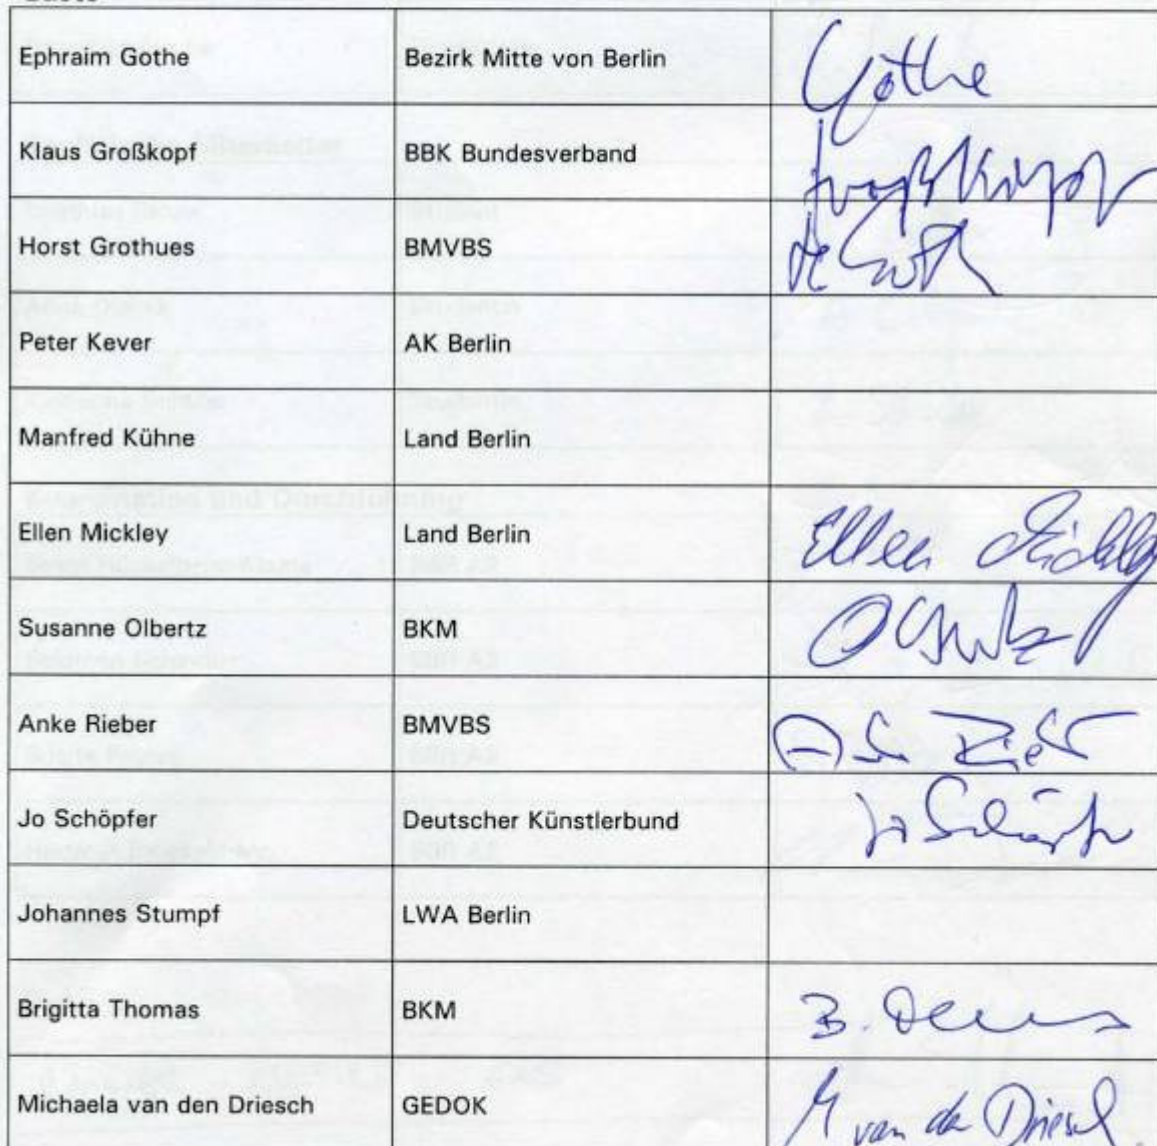 Gäste
Ephraim Gothe Bezirk Mitte von Berlin Gothe
Klaus Großkopf BBK Bundesverband Großkopf
Horst Grothues BMVBS
Peter Kever AK Berlin
Manfred Kühne Land Berlin
Ellen Mickley Land Berlin Ellen Mickley
Susanne Olbertz BKM Olbertz
Anke Rieber BMVBS
Jo Schöpfer Deutscher Künstlerbund Jo Schöpfer
Johannes Stumpf LWA Berlin
Brigitta Thomas BKM B.
Michaela van den Driesch GEDOK M van den Driesch